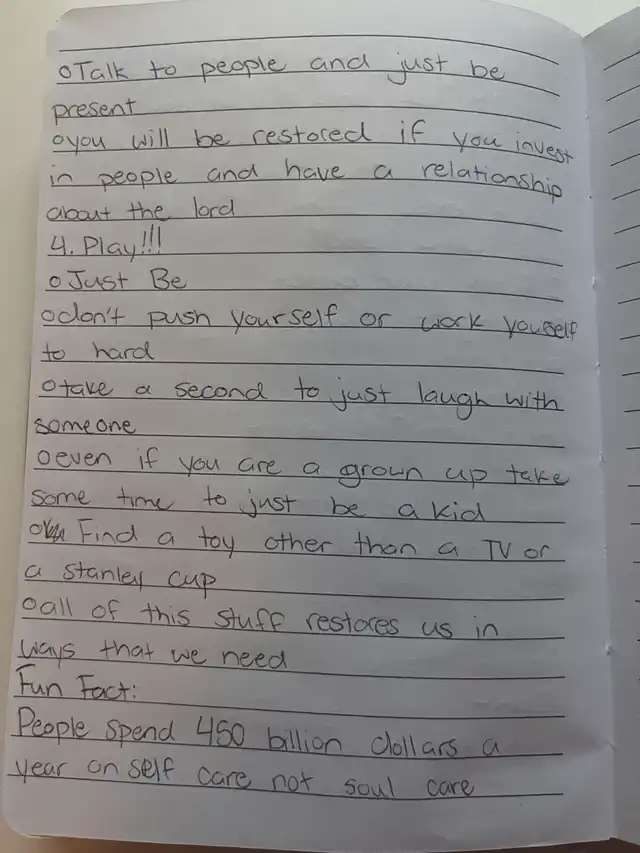 oTalk to people and just be
present
oyou will be restored if you invest
in people and have a relationship
about the lord
4. Play!!!
oJust Be
odon't push yourself or work youself
to hard
otake a second to just laugh with
someone
oeven if you are a grown up take
some time to just be a kid
o Find a toy other than a TV or
a stanley cup
oall of this stuff restores us in
ways that we need
Fun Fact:
People spend 450 billion dollars a
year on self care not soul care